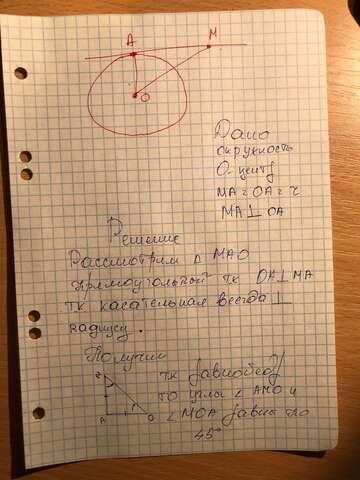 A M
O
Дано
окружность
О-центр
MA = OA = r
MA ⊥ OA
Решение
Рассмотрим Δ MAO
прямоугольной тк OA ⊥ MA
тк касательная всегда ⊥
радиусу.
Получим
тк равнобед/
то углы ∠ AMO и
A r O
∠ MOA равны по
45°